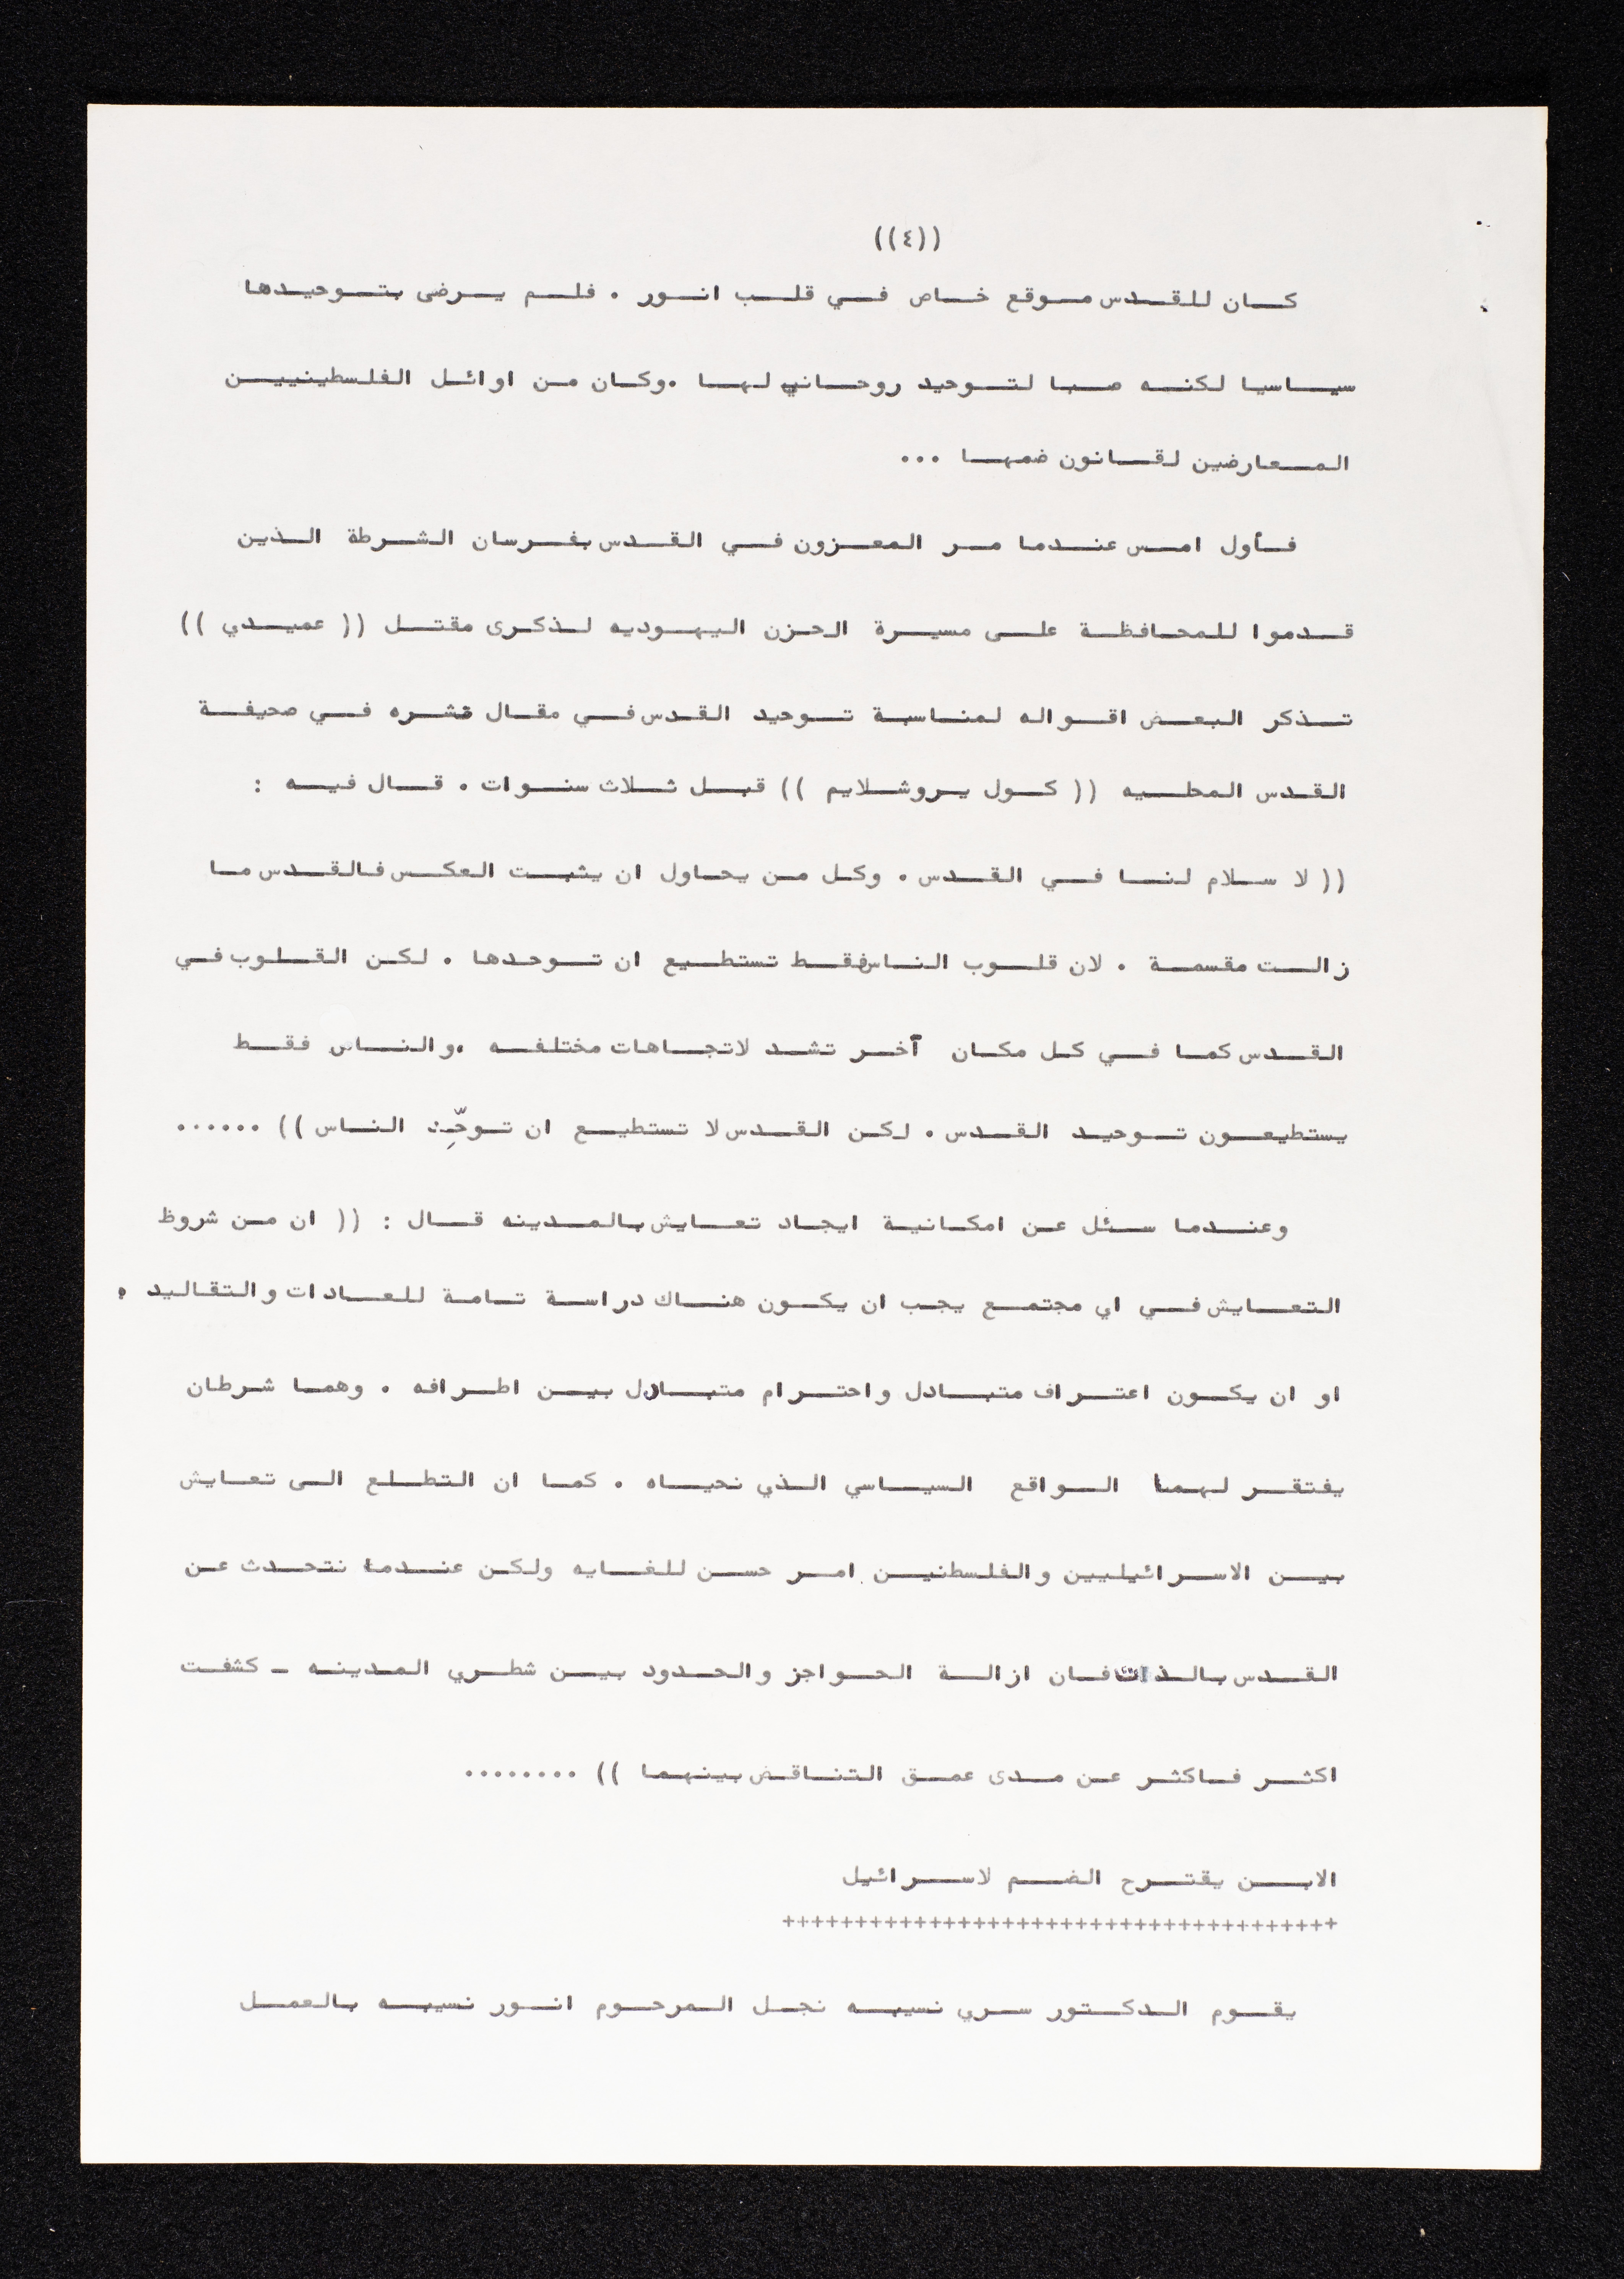 ((٤))
كان للقدس موقع خاص في قلب انور . فلم يرضى بتوحيدها
سياسيا لكنه صبا لتوحيد روحاني لها .وكان من اوائل الفلسطينيين
المعارضين لقانون ضمها ...
فأول امس عندما مر المعزون في القدس بفرسان الشرطة الذين
قدموا للمحافظة على مسيرة الحزن اليهوديه لذكرى مقتل (( عميدي ))
تذكر البعض اقواله لمناسبة توحيد القدس في مقال نشره في صحيفة
القدس المحليه (( كول يروشلايم )) قبل ثلاث سنوات . قال فيه :
(( لا سلام لنا في القدس . وكل من يحاول ان يثبت العكس فالقدس ما
زالت مقسمة . لان قلوب الناس فقط تستطيع ان توحدها . لكن القلوب في
القدس كما في كل مكان آخر تشد لاتجاهات مختلفه .والناس فقط
يستطيعون توحيد القدس . لكن القدس لا تستطيع ان توحّد الناس )) ......
وعندما سئل عن امكانية ايجاد تعايش بالمدينه قال : (( ان من شروط
التعايش في اي مجتمع يجب ان يكون هناك دراسة تامة للعادات والتقاليد .
او ان يكون اعتراف متبادل واحترام متبادل بين اطرافه . وهما شرطان
يفتقر لهما الواقع السياسي الذي نحياه . كما ان التطلع الى تعايش
بين الاسرائيليين والفلسطنين امر حسن للغايه ولكن عندما نتحدث عن
القدس بالذات فان ازالة الحواجز والحدود بين شطري المدينه ـ كشفت
اكثر فاكثر عن مدى عمق التناقض بينهما )) ........
الابن يقترح الضم لاسرائيل
++++++++++++++++++++++++++++++++++++++
يقوم الدكتور سري نسيبه نجل المرحوم انور نسيبه بالعمل